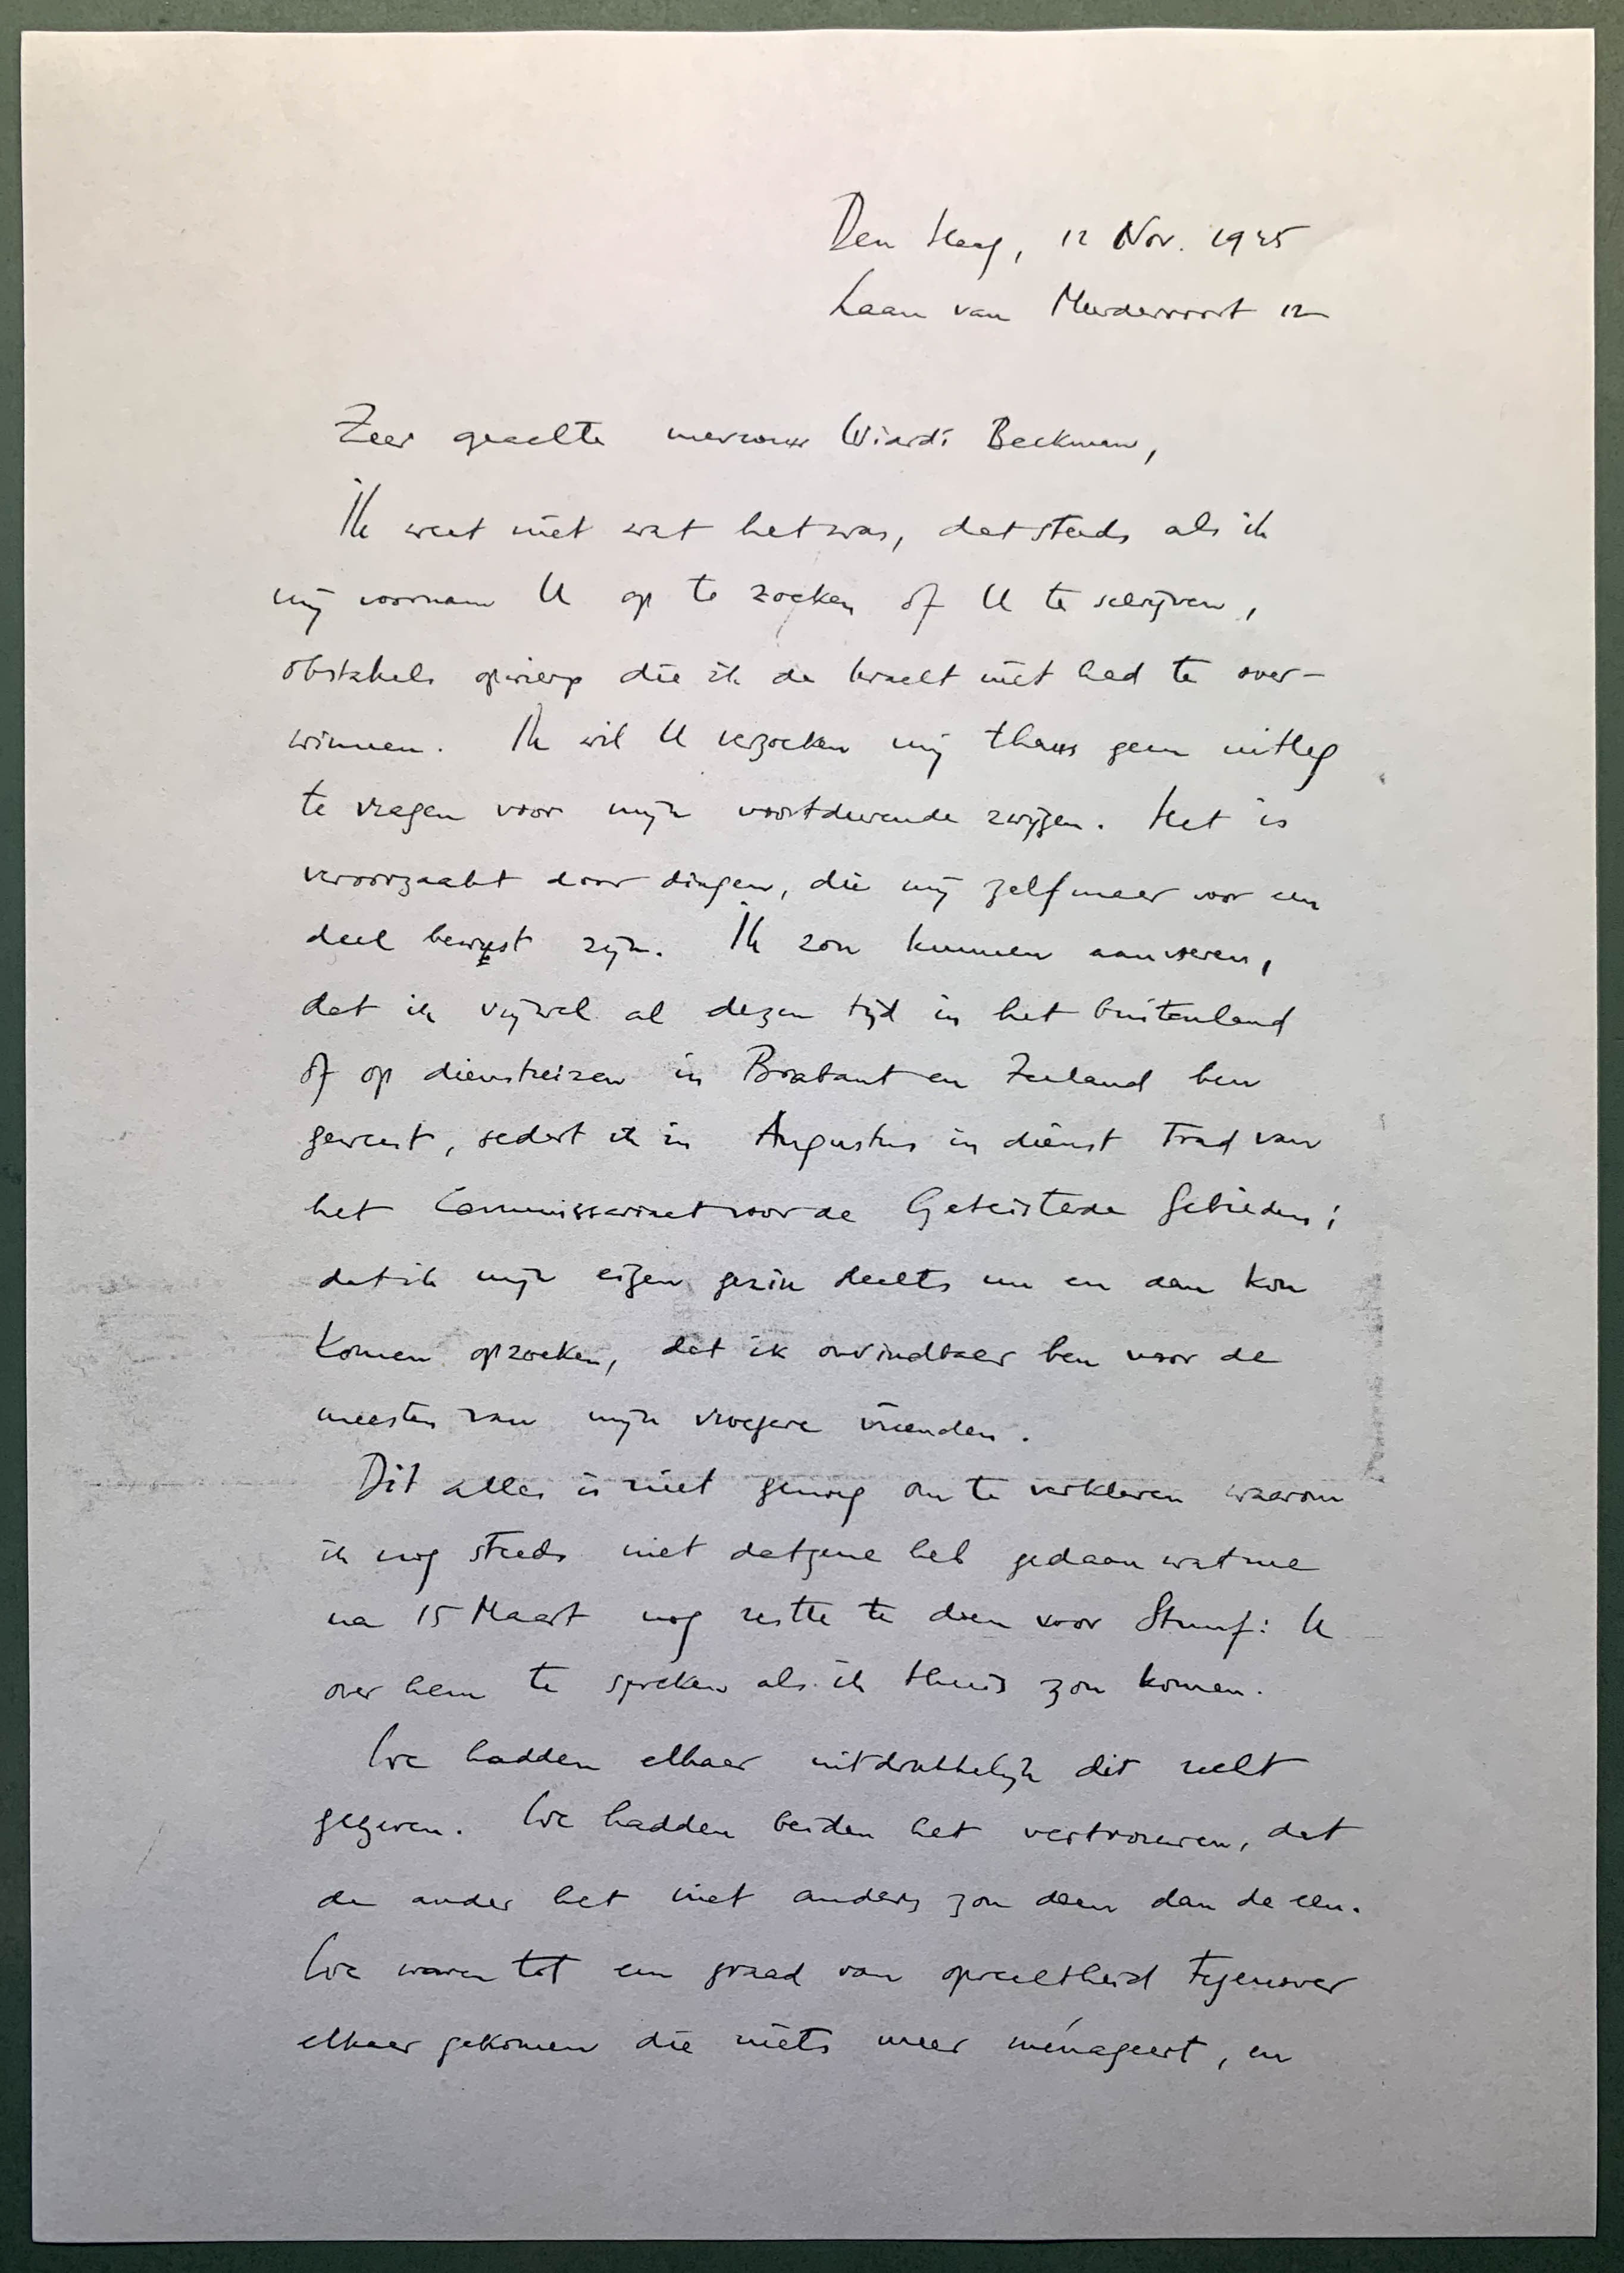 Den Haag, 12 Nov. 1945
Laan van Meerdervoort 12
Zeer geachte mevrouw Wiardi Beckman,
Ik weet niet wat het was, dat steeds als ik
mij voornam U op te zoeken of U te schrijven,
obstakels opwierp die ik de kracht niet had te over-
winnen. Ik wil U verzoeken mij thans geen uitleg
te vragen voor mijn voortdurende zwijgen. Het is
veroorzaakt door dingen, die mij zelf maar voor een
deel bewust zijn. Ik zou kunnen aanvoeren,
dat ik vrijwel al dezen tijd in het buitenland
of op dienstreizen in Brabant en Zeeland ben
geweest, sedert ik in Augustus in dienst trad van
het Commissariaat voor de Geteisterde Gebieden;
dat ik mijn eigen gezin slechts nu en dan kon
komen opzoeken, dat ik onvindbaar ben voor de
meesten van mijn vroegere vrienden.
Dit alles is niet genoeg om te verklaren waarom
ik nog steeds niet datgene heb gedaan wat me
na 15 Maart nog restte te doen voor Stuuf: U
over hem te spreken als ik thuis zou komen.
We hadden elkaar uitdrukkelijk dit recht
gegeven. We hadden beiden het vertrouwen, dat
de ander het niet anders zou doen dan de een.
We waren tot een graad van oprechtheid tegenover
elkaar gekomen die niets meer ménageert, en